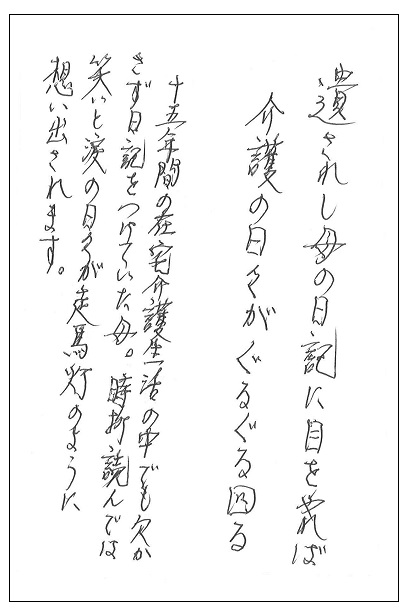 遺されし母の日記に目を遣れば
介護の日々がぐるぐる回る
十五年間の在宅介護生活の中でも欠か
さず日記をつけていた母。時折読んでは
笑いと涙の日々が走馬灯のように
想い出されます。